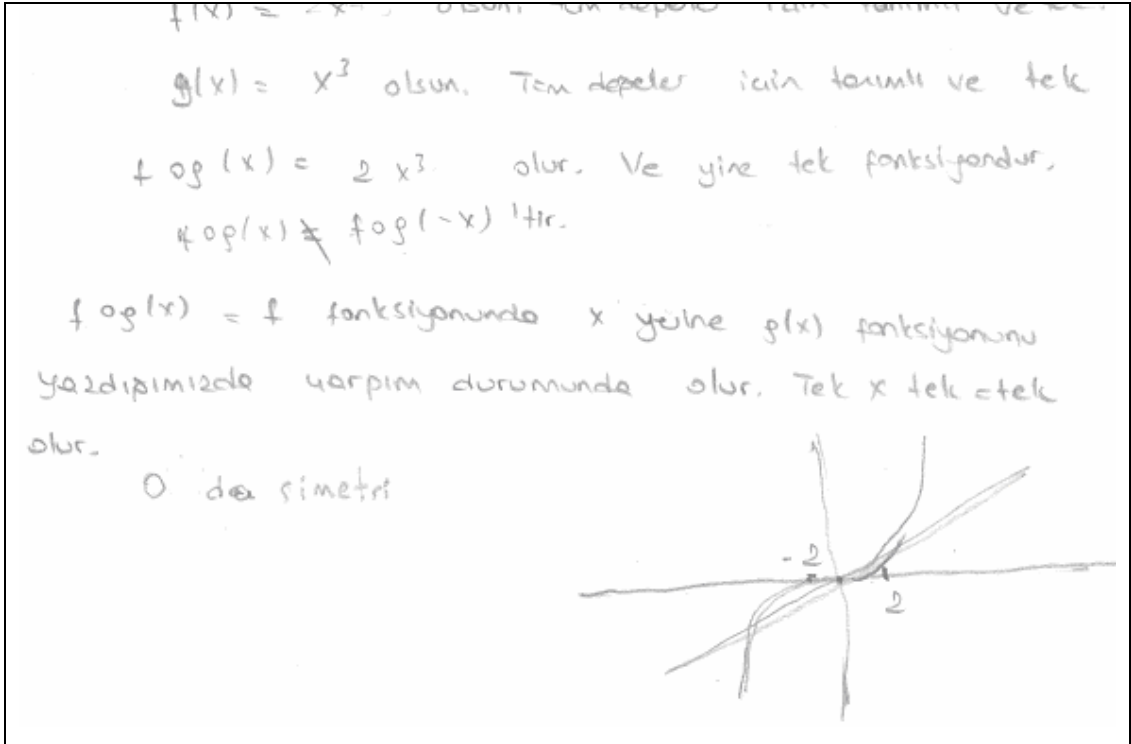 f(x) = 2x olsun. Tüm depeler icin tanımlı ve tek.
g(x) = x³ olsun. Tüm depeler icin tanımlı ve tek
fog(x) = 2x³ olur. Ve yine tek fonksiyondur.
fog(x) ≠ fog(-x) 'tir.
fog(x) = f fonksiyonunda x yerine g(x) fonksiyonunu
yazdıpımızda çarpım durumunda olur. Tek x tek = tek
olur.
0 da simetri
-2
2